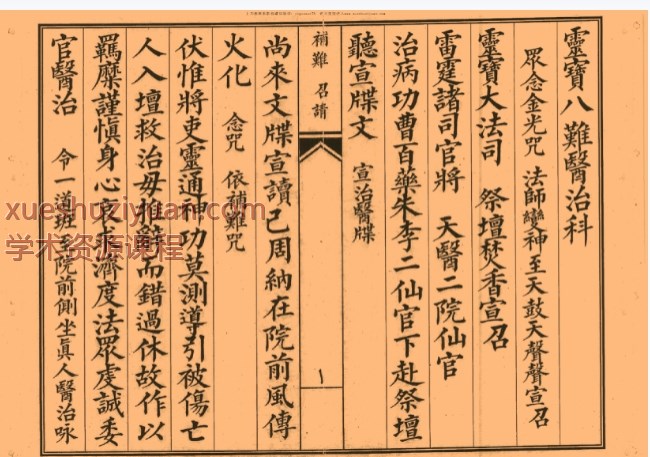 靈寶八難醫治科
眾念金光咒 法師變神至天鼓天聲聲宣召
靈寶大法司 祭壇焚香宣召
雷霆諸司官將 天醫二院仙官
治病功曹百藥朱李二仙官下赴祭壇
聽宣牒文 宣治醫牒
補難 召請
尚來文牒宣讀已周納在院前風傳
火化 念咒 依補難咒
伏惟將吏靈通神功莫測導引被傷亡
人入壇救治毋推辭而錯過休故作以
羈縻謹慎身心哀求濟度法眾虔誠委
官醫治 令一道班至院前側坐真人醫治咏
xueshuziyuan.com
学术资源课程